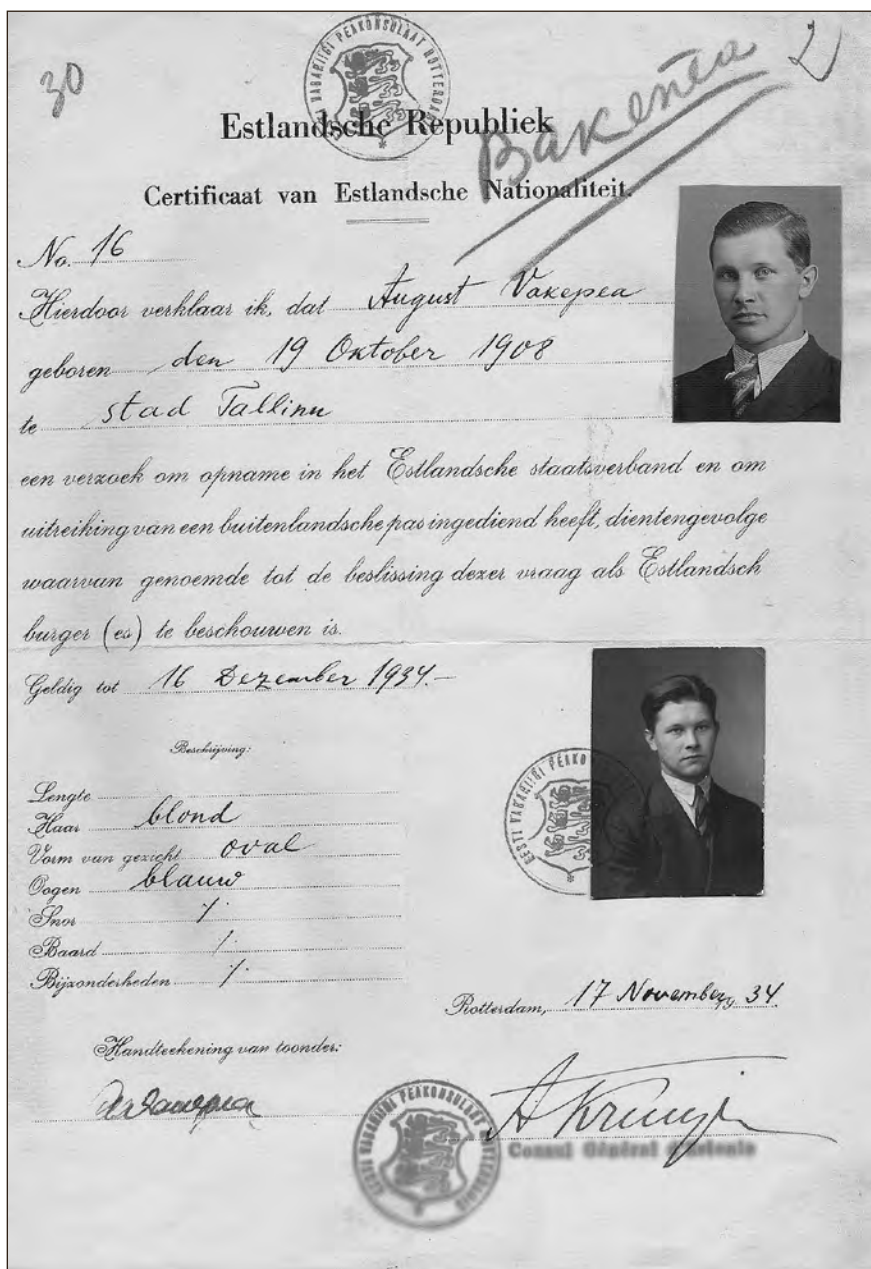 30
2
EESTI VABARIIGI PEAKONSULAAT ROTTERDAMIS
Estlandsche Republiek
Certificaat van Estlandsche Nationaliteit.
No. 16
Hierdoor verklaar ik, dat August Vakepea
geboren den 19 Oktober 1908
te stad Tallinn
een verzoek om opname in het Estlandsche staatsverband en om
uitreiking van een buitenlandsche pas ingediend heeft, dientengevolge
waarvan genoemde tot de beslissing dezer vraag als Estlandsch
burger (es) te beschouwen is.
Geldig tot 16 Dezember 1934.-
Beschrijving:
EESTI VABARIIGI PEAKO
Lengte
Haar blond
Vorm van gezicht oval
Oogen blauw
Snor ./.
Baard ./.
Bijzonderheden ./.
Rotterdam, 17 November 1934
Handteekening van toonder:
EESTI VABARIIGI PEAKONSULAAT ROTTERDAMIS
Consul Général d'Estonie